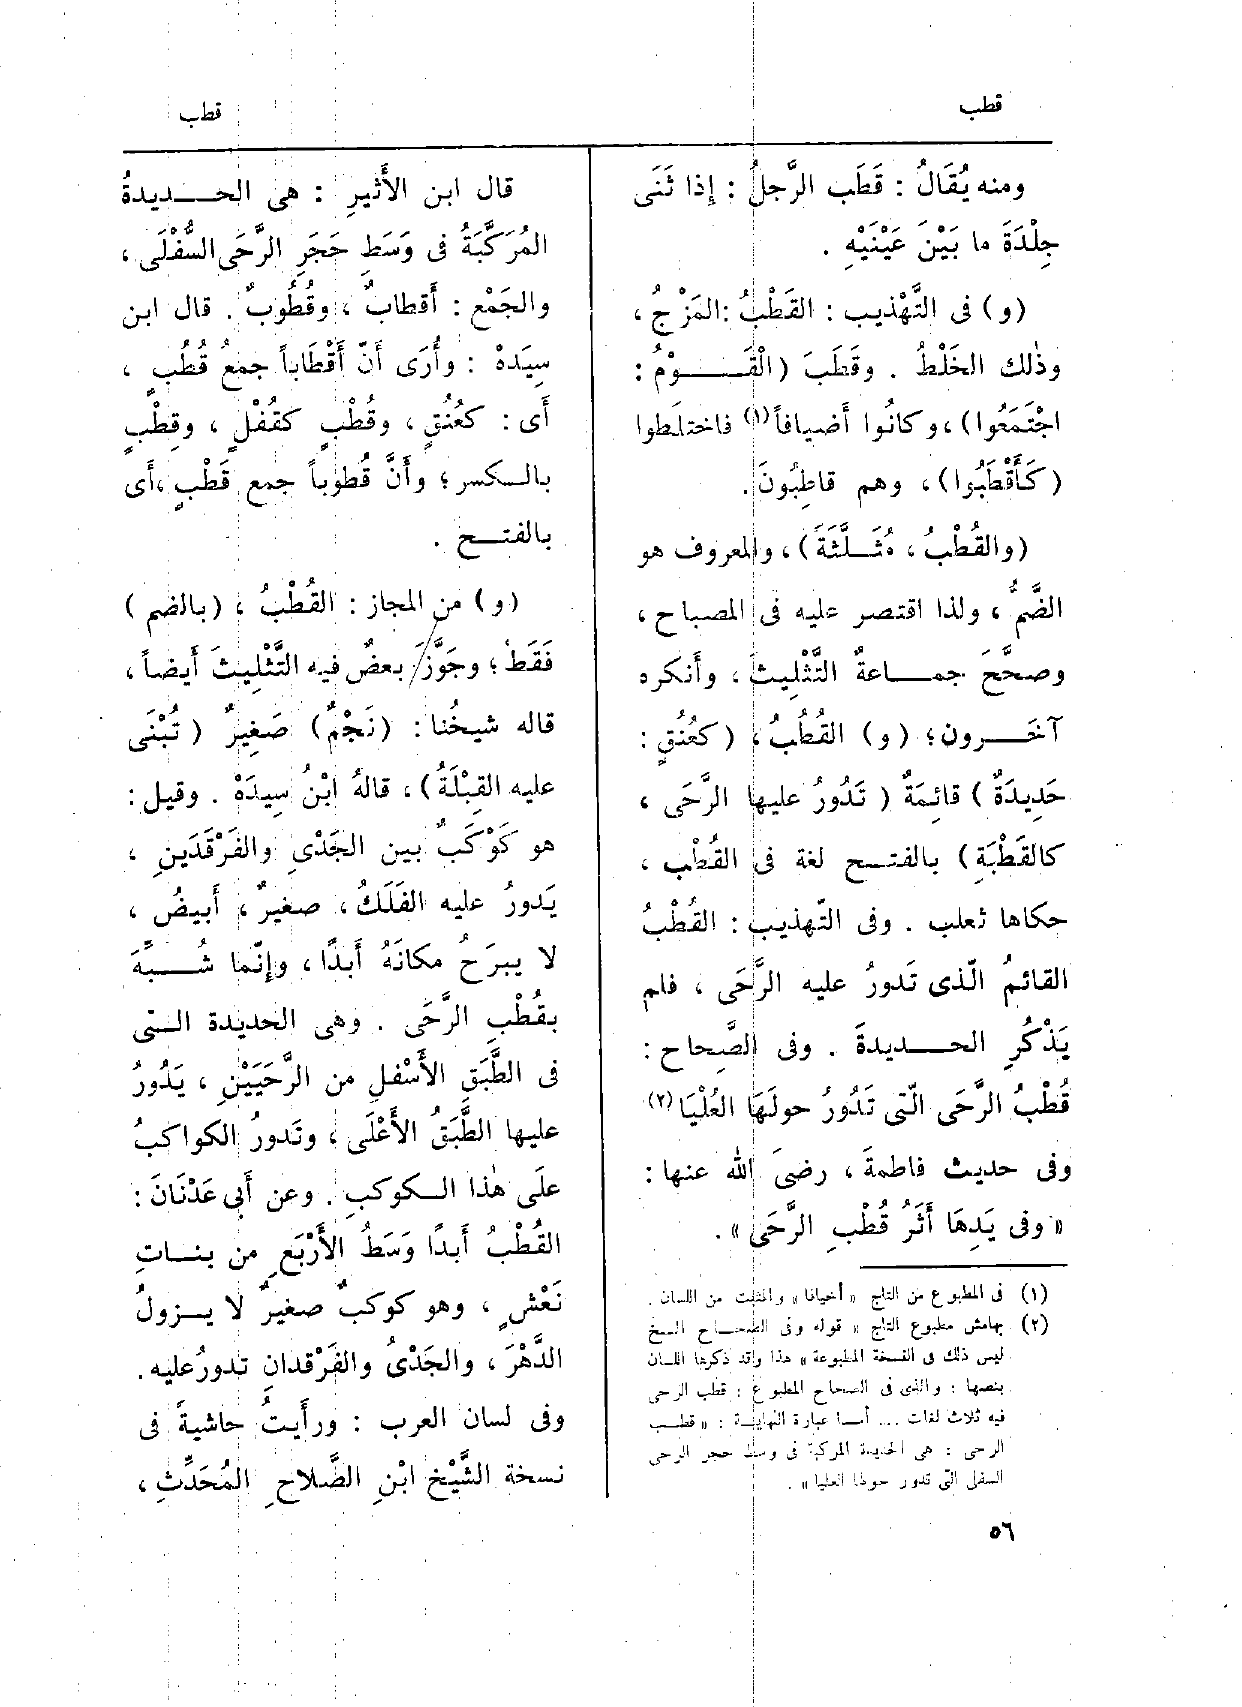 قطب
قطب
ومنه يُقَالُ : قَطَب الرَّجلُ : إذا ثَنَى
جِلْدَةَ ما بَيْنَ عَيْنَيْهِ .
(و) فى التَّهْذيب : القَطْبُ : المَزْجُ ،
وذٰلك الخَلْطُ . وقَطَبَ (الْقَوْمُ :
اجْتَمَعُوا) ، وكانُوا أضيافاً(١) فاختلَطوا
(كَأَقْطَبُوا) ، وهم قاطِبُونَ .
(والقُطْبُ ، مُثَلَّثَةً) ، والمعروف هو
الضَّمُّ ، ولذا اقتصر عليه فى المصباح ،
وصحَّحَ جماعةٌ التَّثْلِيثَ ، وأنكره
آخَرون ؛ (و) القُطُبُ ، (كعُنُقٍ :
حَدِيدَةٌ) قائِمَةٌ (تَدُورُ عليها الرَّحَى ،
كالقَطْبَةِ) بالفتح لغة فى القُطْب ،
حكاها ثعلب . وفى التّهذيب : القُطْبُ
القائمُ الّذى تَدورُ عليه الرَّحَى ، فلم
يَذْكُرِ الحديدةَ . وفى الصَّحاح :
قُطْبُ الرَّحَى الّتى تَدُورُ حولَهَا العُلْيَا(٢)
وفى حديث فاطمةَ ، رضىَ الله عنها :
« وفى يَدِهَا أَثَرُ قُطْبِ الرَّحَى » .
(١) فى المطبوع من التاج « أحيافا » والمثبت من اللسان .
(٢) بهامش مطبوع التاج « قوله وفى الصحاح الخ
ليس ذلك فى النسخة المطبوعة » هذا وقد ذكرها اللسان
بنصها : والذى فى الصحاح المطبوع : قطب الرحى
فيه ثلاث لغات ... أما عبارة النهاية : « قطب
الرحى : هى الحديدة المركبة فى وسط حجر الرحى
السفل التى تدور حولها العليا » .
قال ابن الأَثيرِ : هى الحديدةُ
المُرَكَّبَةُ فى وَسَطِ حَجَرِ الرَّحَى السُّفْلَى ،
والجَمْع : أَقطابٌ ، وقُطُوبٌ . قال ابن
سِيَدهْ : وأُرَى أنّ أَقْطاباً جمعُ قُطُبٍ ،
أى : كعُنُقٍ ، وقُطْبٍ كقُفْلٍ ، وقِطْبٍ
بالكسر ؛ وأنَّ قُطوباً جمع قَطْبٍ ، أى
بالفتح .
(و) من المجاز : القُطْبُ ، (بالضم)
فَقَطْ ؛ وجَوَّزَ بعضٌ فيه التَّثْلِيثَ أيضاً ،
قاله شيخُنا : (نَجْمٌ) صَغِيرٌ (تُبْنَى
عليه القِبْلَةُ) ، قالهُ ابْنُ سِيدَهْ . وقيل :
هو كَوْكَبٌ بين الجَدْىِ والفَرْقَدَينِ ،
يَدورُ عليه الفَلَكُ ، صغيرٌ ، أَبيضُ ،
لا يبرَحُ مكانَهُ أَبدًا ، وإنّما شُبِّهَ
بقُطْبِ الرَّحَى . وهى الحديدة التى
فى الطَّبَقِ الأَسْفلِ من الرَّحَيَيْنِ ، يَدُورُ
عليها الطَّبَقُ الأَعْلَى ، وتَدورُ الكواكبُ
علَى هٰذا الكوكبِ . وعن أبى عَدْنَانَ :
القُطْبُ أبدًا وَسَطُ الأَرْبَعِ من بنات
نَعْشٍ ، وهو كوكبٌ صغيرٌ لا يزولُ
الدَّهْرَ ، والجَدْىُ والفَرْقدان تدورُ عليه .
وفى لسان العرب : ورأَيتُ حاشيةً فى
نسخة الشَّيْخ ابْنِ الصَّلاحِ المُحَدِّثِ ،
٥٦